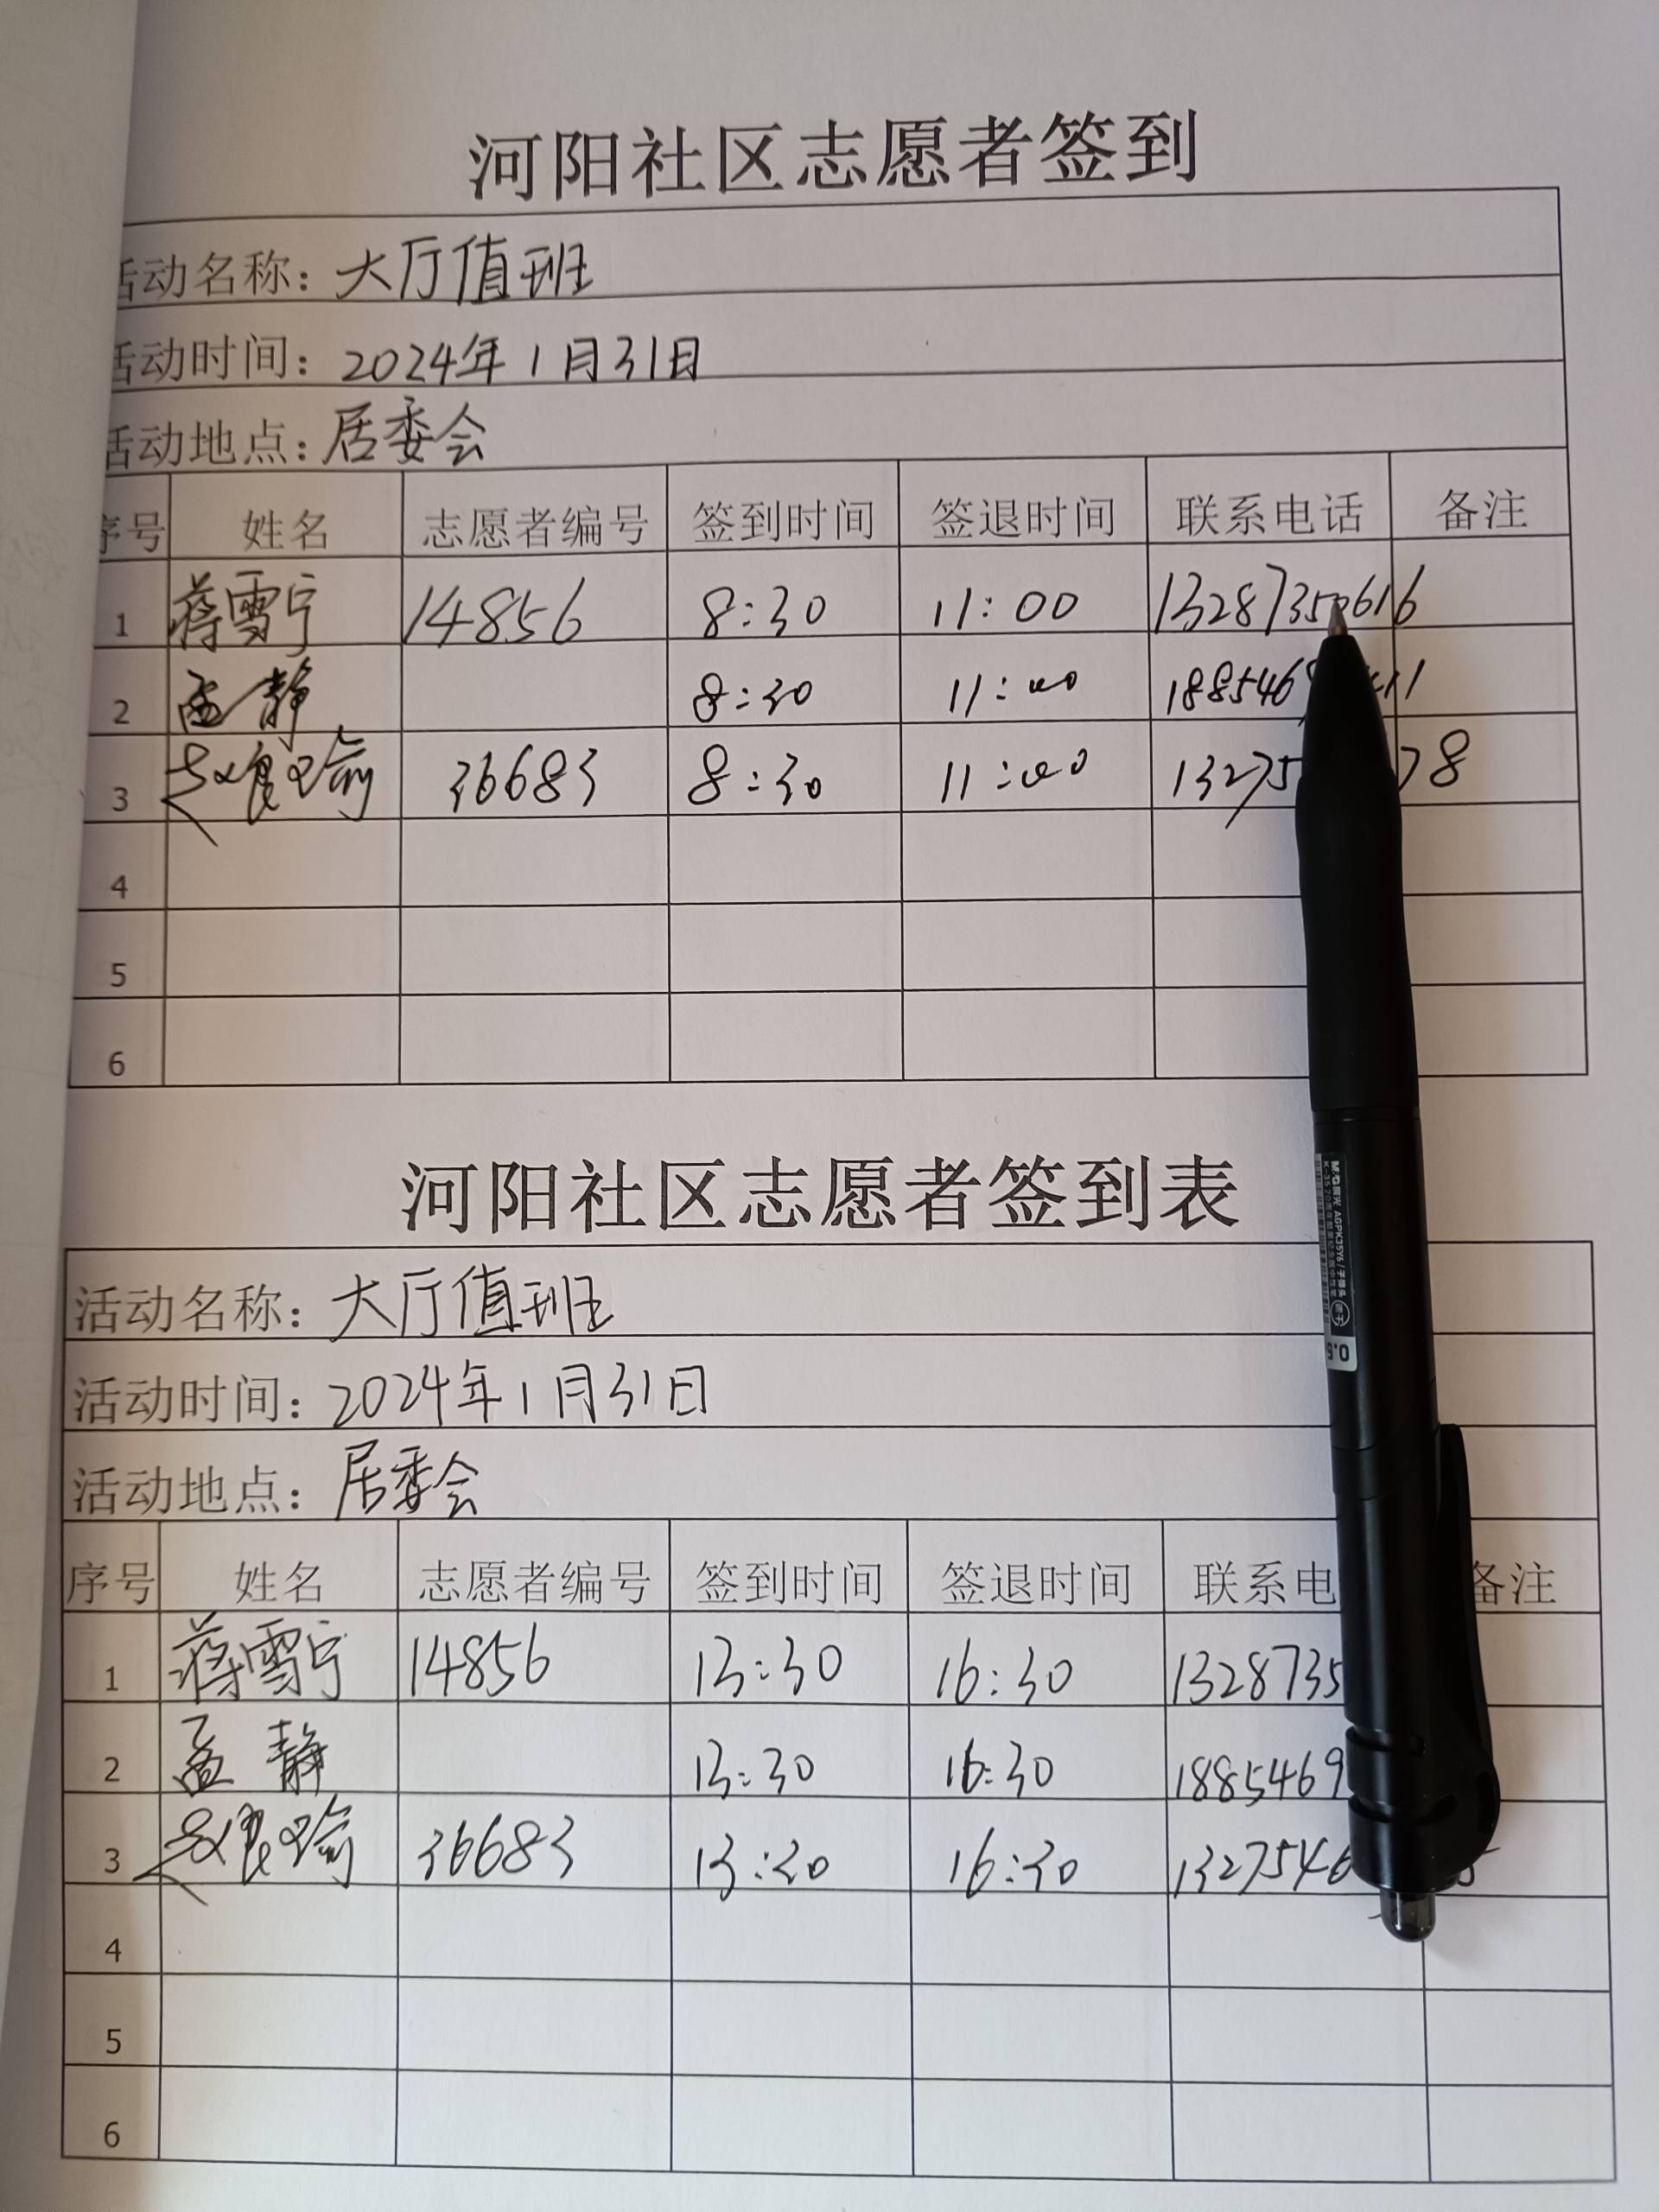 河阳社区志愿者签到
活动名称：大厅值班
活动时间：2024年1月31日
活动地点：居委会
序号 姓名 志愿者编号 签到时间 签退时间 联系电话 备注
1 蒋雪宁 14856 8:30 11:00 13287350616
2 孟静 8:30 11:00 1885469
3 36683 8:30 11:00 13275 78
4
5
6
河阳社区志愿者签到表
活动名称：大厅值班
活动时间：2024年1月31日
活动地点：居委会
序号 姓名 志愿者编号 签到时间 签退时间 联系电 备注
1 蒋雪宁 14856 13:30 16:30 1328735
2 孟静 13:30 16:30 1885469
3 36683 13:30 16:30 1327546
4
5
6
M&G 晨光 AGPK35Y6
0.5